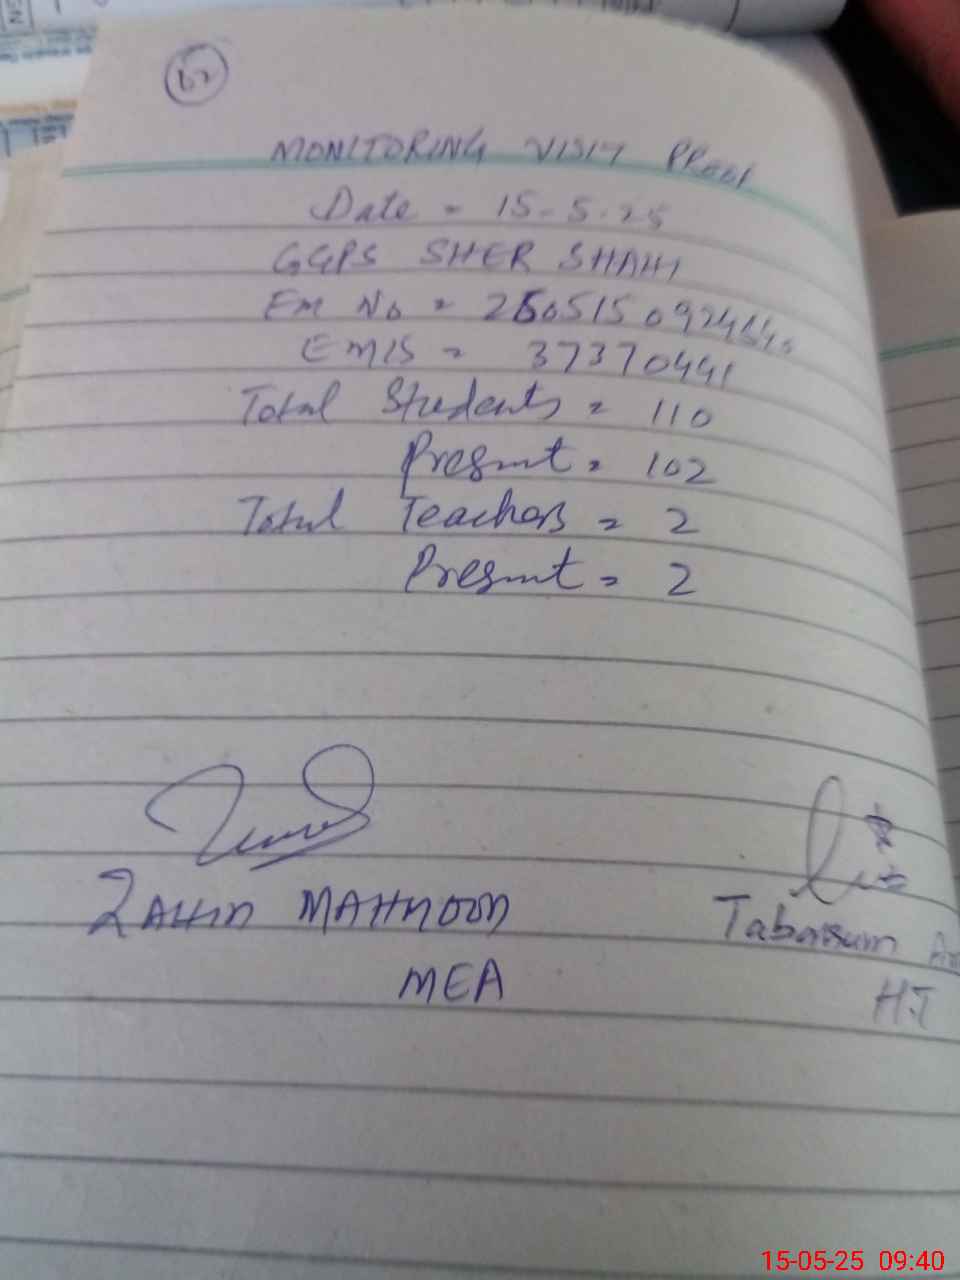 MONITORING VISIT PROOF
Date = 15-5-25
GGPS SHER SHAHI
Em No =
EMIS = 37370441
Total Students = 110
Present = 102
Total Teachers = 2
Present = 2
MAHMOOD
Tabassum
MEA
H.T
15-05-25 09:40